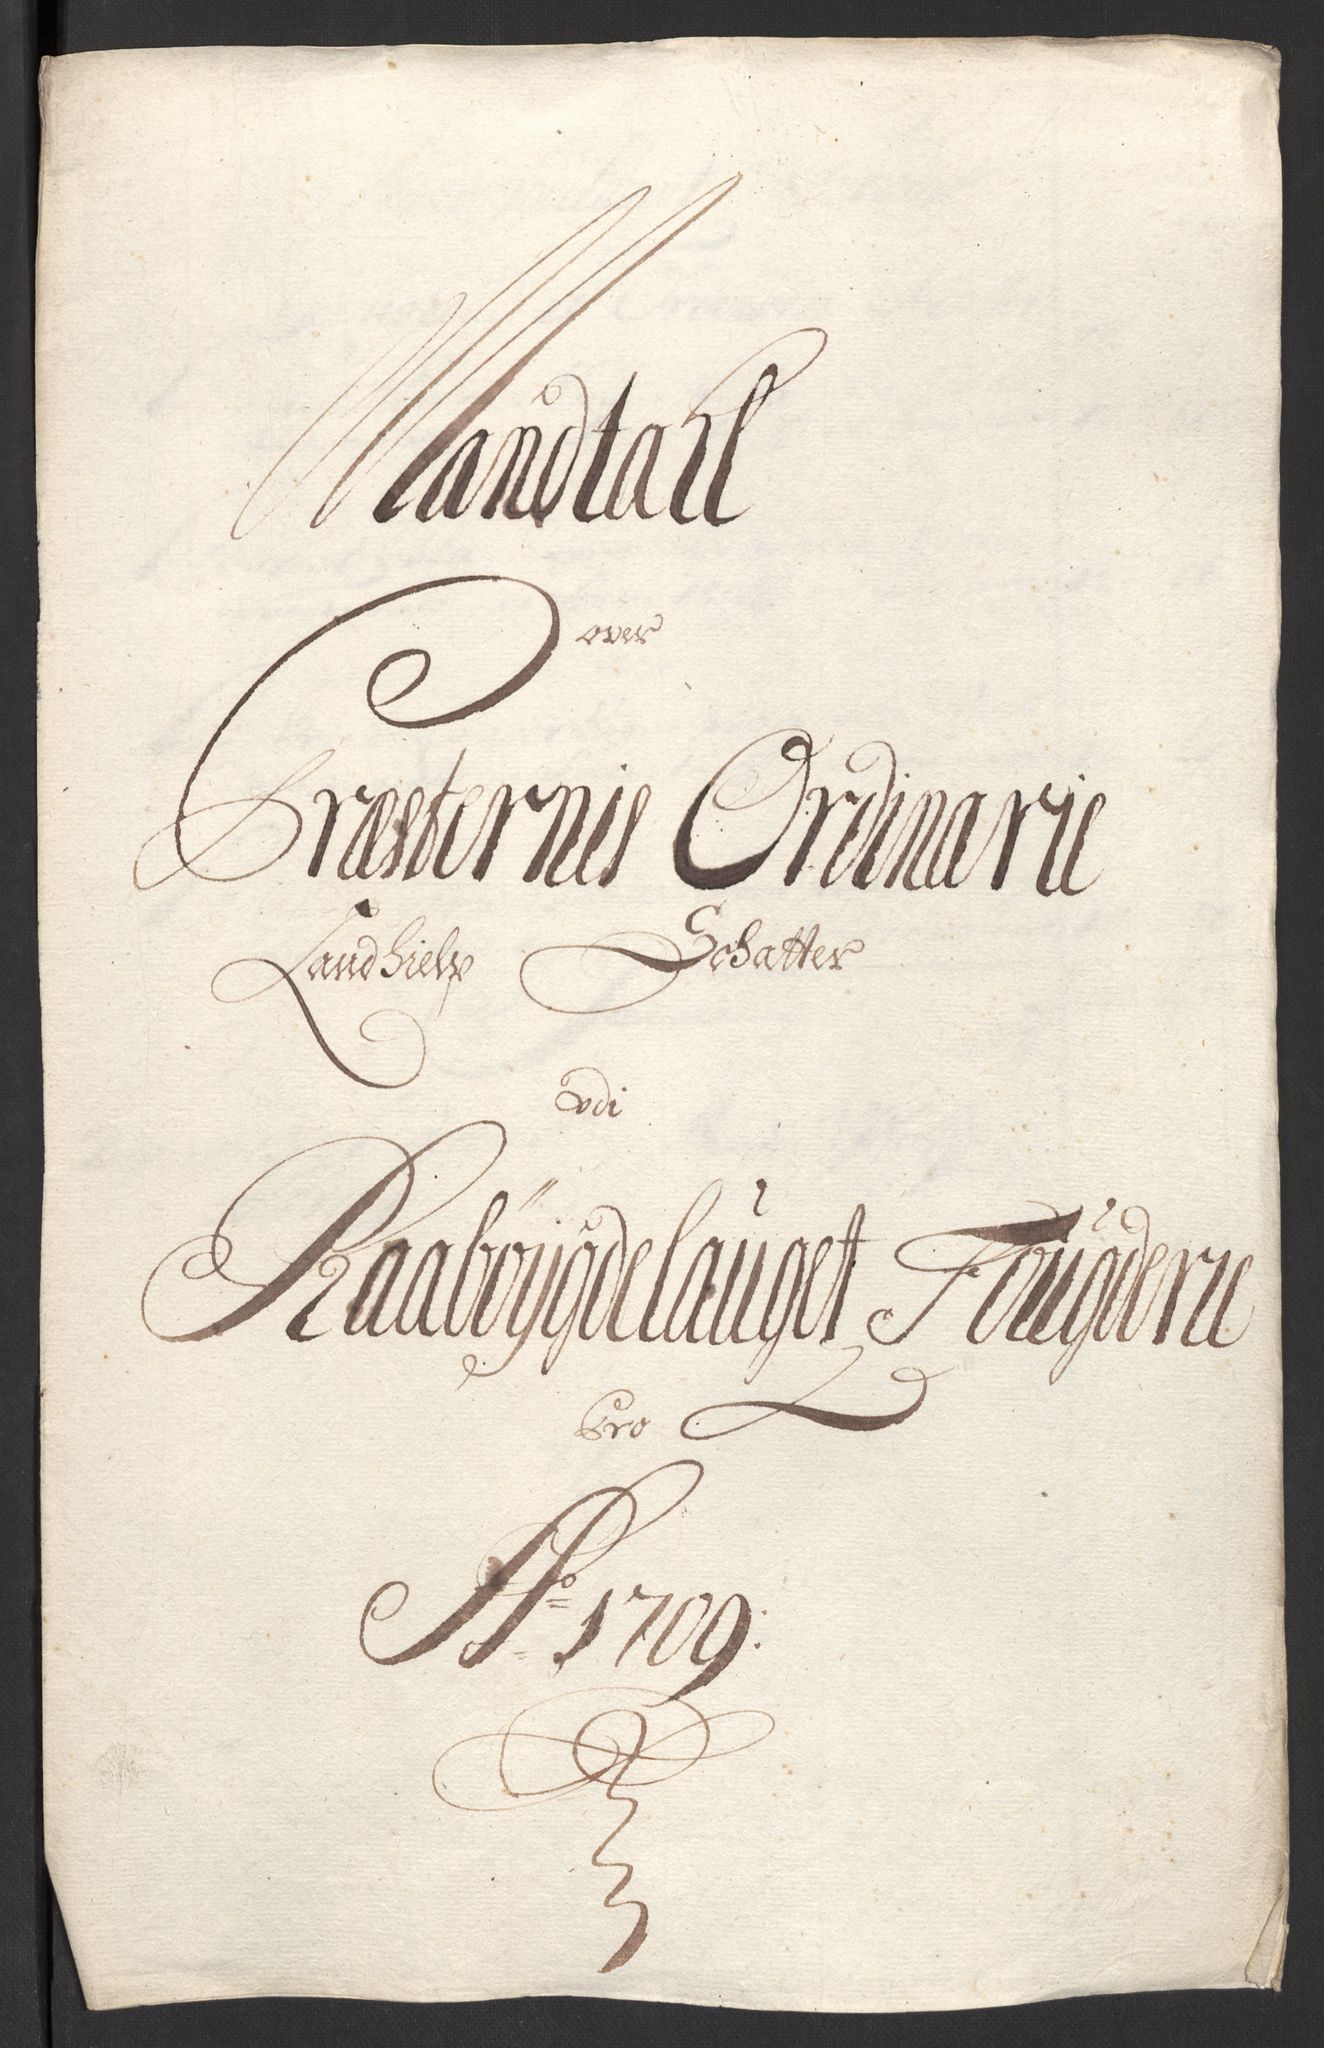 Mandtall
over
Præsternis Ordinarie
Landhielp Schatter
udi
Raaböÿgdelauget Fougderie
Pro
Ao 1709: